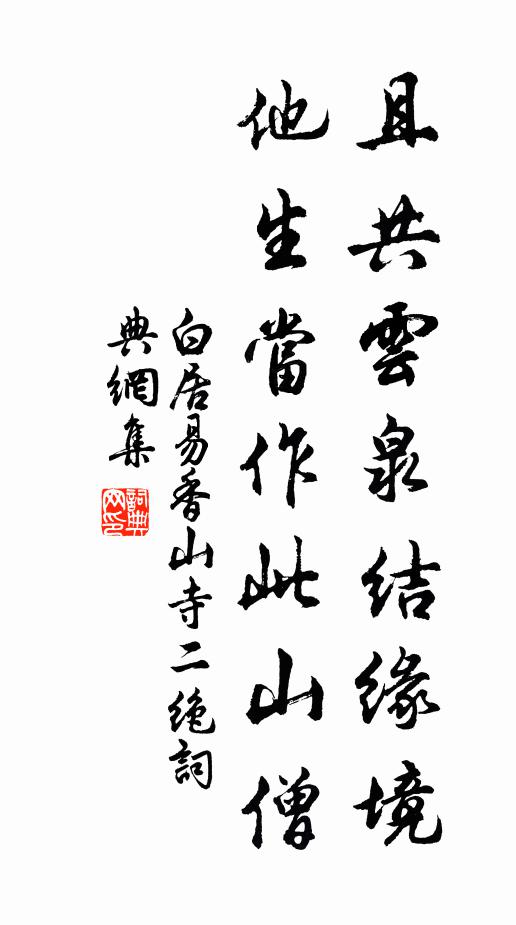 且共雲泉結緣境
他生當作此山僧
白居易香山寺二絶詞
典網集
詞典網印